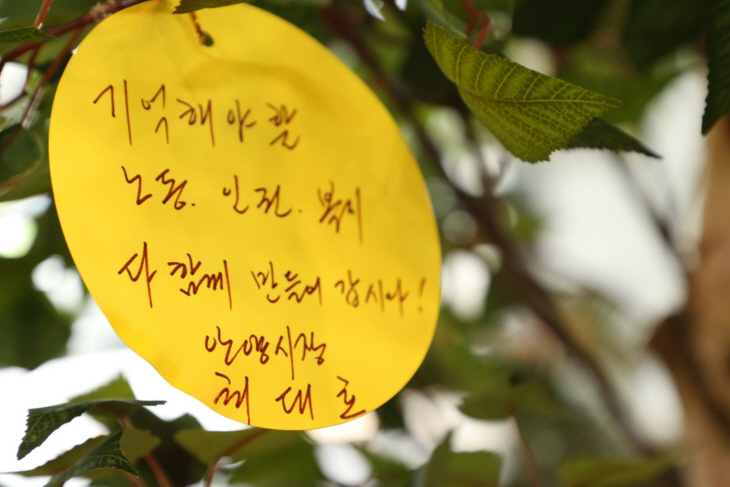 기억해야 할
노동. 인권. 복지
다 함께 만들어 갑시다!
안양시장
최대호